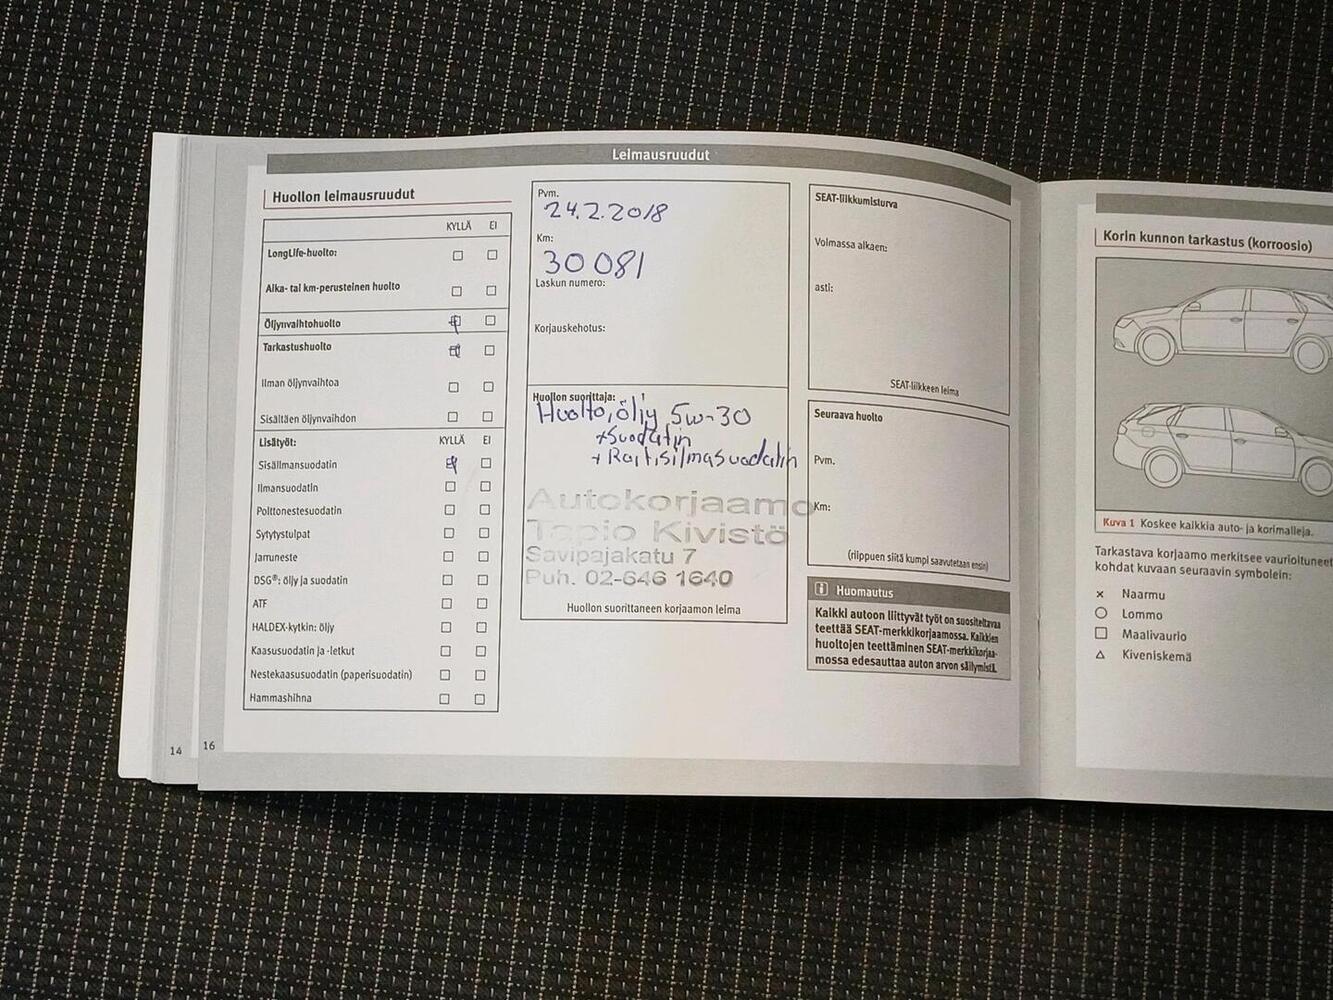 Leimausruudut
Huollon leimausruudut
KYLLÄ EI
LongLife-huolto:
Aika- tai km-perusteinen huolto
Öljynvaihtohuolto
Tarkastushuolto
Ilman öljynvaihtoa
Sisältäen öljynvaihdon
Lisätyöt: KYLLÄ EI
Sisäilmansuodatin
Ilmansuodatin
Polttonestesuodatin
Sytytystulpat
Jarruneste
DSG®: öljy ja suodatin
ATF
HALDEX-kytkin: öljy
Kaasusuodatin ja -letkut
Nestekaasusuodatin (paperisuodatin)
Hammashihna
14
16
Pvm.
24.2.2018
Km:
30 081
Laskun numero:
Korjauskehotus:
Huollon suorittaja:
Huolto, öljy 5w-30
+Suodatin
+ Raitisilmasuodatin
Autokorjaamo
Tapio Kivistö
Savipajakatu 7
Puh. 02-646 1640
Huollon suorittaneen korjaamon leima
SEAT-liikkumisturva
Voimassa alkaen:
asti:
SEAT-liikkeen leima
Seuraava huolto
Pvm.
Km:
(riippuen siitä kumpi saavutetaan ensin)
i Huomautus
Kaikki autoon liittyvät työt on suositeltavaa
teettää SEAT-merkkikorjaamossa. Kaikkien
huoltojen teettäminen SEAT-merkkikorjaa-
mossa edesauttaa auton arvon säilymistä.
Korin kunnon tarkastus (korroosio)
Kuva 1 Koskee kaikkia auto- ja korimalleja.
Tarkastava korjaamo merkitsee vaurioituneet
kohdat kuvaan seuraavin symbolein:
× Naarmu
○ Lommo
□ Maalivaurio
△ Kiveniskemä